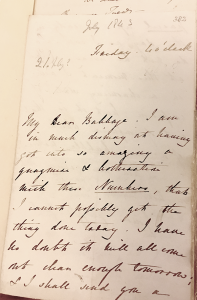 July 1843
382
Tuesday. 4 o'clock
My Dear Babbage. I am
in much dismay at having
got into so amazing a
quagmire & botheration
with these Numbers, that
I cannot possibly get the
thing done today. I have
no doubt it will all come
out clean enough tomorrow;
& I shall send you a